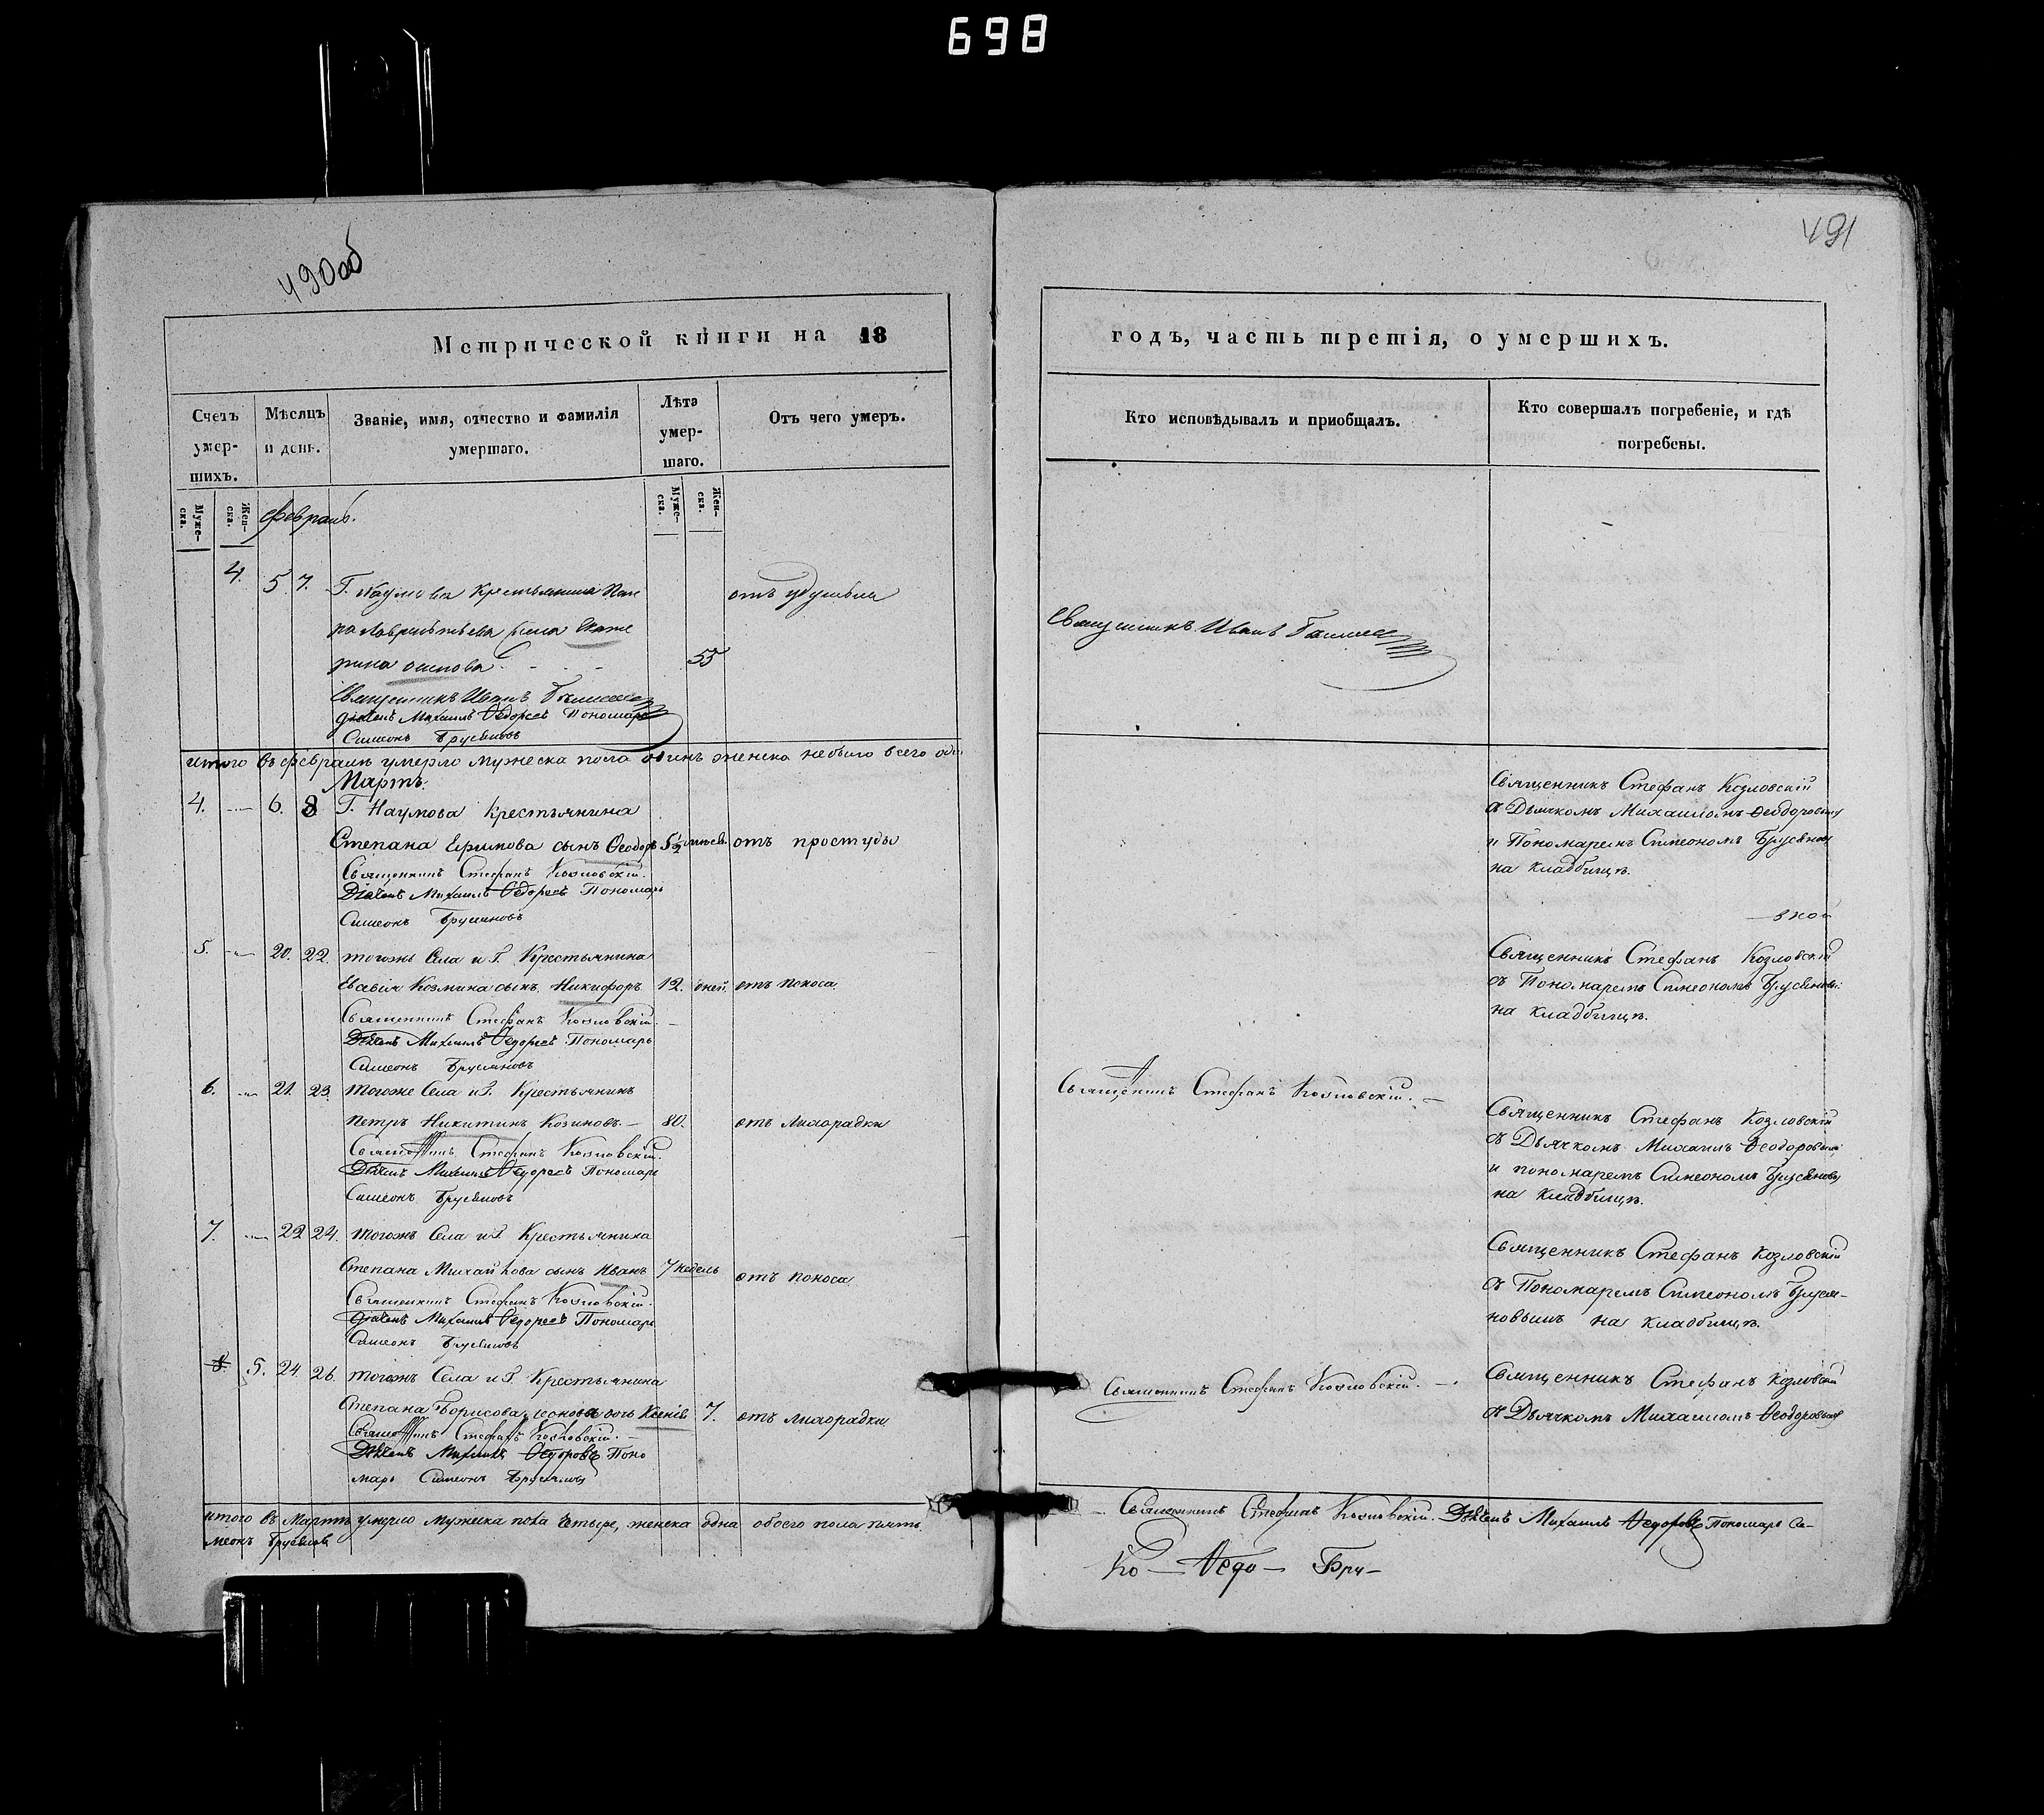 698
490об
491
Метрической книги на 18
годъ, часть третія, о умершихъ.
Счетъ умер-шихъ.
Мѣсяцъ и день.
Званіе, имя, отчество и фамилія умершаго.
Лѣта умер-шаго.
Отъ чего умеръ.
Кто исповѣдывалъ и пріобщалъ.
Кто совершалъ погребеніе, и гдѣ погребены.
Муже-ска.
Жен-ска.
Муже-ска.
Жен-ска.
Февраль.
4. 5 7. Г. Наумова крестьянина
жена Екате
рина Осипова 55
Священникъ Иванъ
Михаилъ Ѳедоровъ Пономарь
Симеонъ Брусяновъ
Священникъ Иванъ
итого въ февралѣ умерло мужеска пола одинъ женска небыло всего
Мартъ.
4. 6. 8 Г. Наумова Крестьянина
Степана Ефимова сынъ Ѳеодоръ отъ простуды
Священникъ Стефанъ Козловскій.
Михаилъ Ѳедоровъ Пономарь
Симеонъ Брусяновъ
Священникъ Стефанъ Козловскій
съ Дьячкомъ Михаиломъ Ѳеодоровымъ
и Пономаремъ Симеономъ Брусяновымъ
на кладбищѣ.
5. 20. 22. тогожъ Села и Г. Крестьянина
Козмина сынъ Никифоръ 12. дней. отъ поноса
Священникъ Стефанъ Козловскій.
Михаилъ Ѳедоровъ Пономарь
Симеонъ Брусяновъ
Священникъ Стефанъ Козловскій
съ Пономаремъ Симеономъ Брусяновы:
на кладбищѣ.
6. 21. 23. тогоже Села и Г. Крестьянинъ
Петръ Никитинъ Козиновъ 80. отъ лихорадки
Стефанъ Козловскій.
Михаилъ Ѳедоровъ Пономарь
Симеонъ Брусяновъ
Священникъ Стефанъ Козловскій.
Священникъ Стефанъ Козловскій
съ Дьячкомъ Михаилъ Ѳеодоровымъ
и пономаремъ Симеономъ Брусяновымъ
на кладбищѣ.
7. 22 24. тогожъ Села и Г. Крестьянина
Степана Михайлова сынъ Иванъ 7 недель отъ поноса
Священникъ Стефанъ Козловскій.
Михаилъ Ѳедоровъ Пономарь
Симеонъ Брусяновъ
Священникъ Стефанъ Козловскій
съ Пономаремъ Симеономъ Бруся-
новымъ на кладбищѣ.
8. 5. 24. 26. тогожъ Села и Г. Крестьянина
Степана Борисова дочь Ксенія 7. отъ лихорадки
Стефанъ Козловскій.
Михаилъ Ѳедоровъ Поно
марь Симеонъ Брусяновъ
Священникъ Стефанъ Козловскій.
Священникъ Стефанъ Козловскій
съ Дьячкомъ Михаиломъ Ѳеодоровымъ
итого въ Мартѣ умерло мужеска пола четыре, женска одна обоего пола пять.
Священникъ Стефанъ Козловскій. Михаилъ Ѳедоровъ Пономарь Си-
меонъ Брусяновъ
Ко— Ѳедо— Бру—